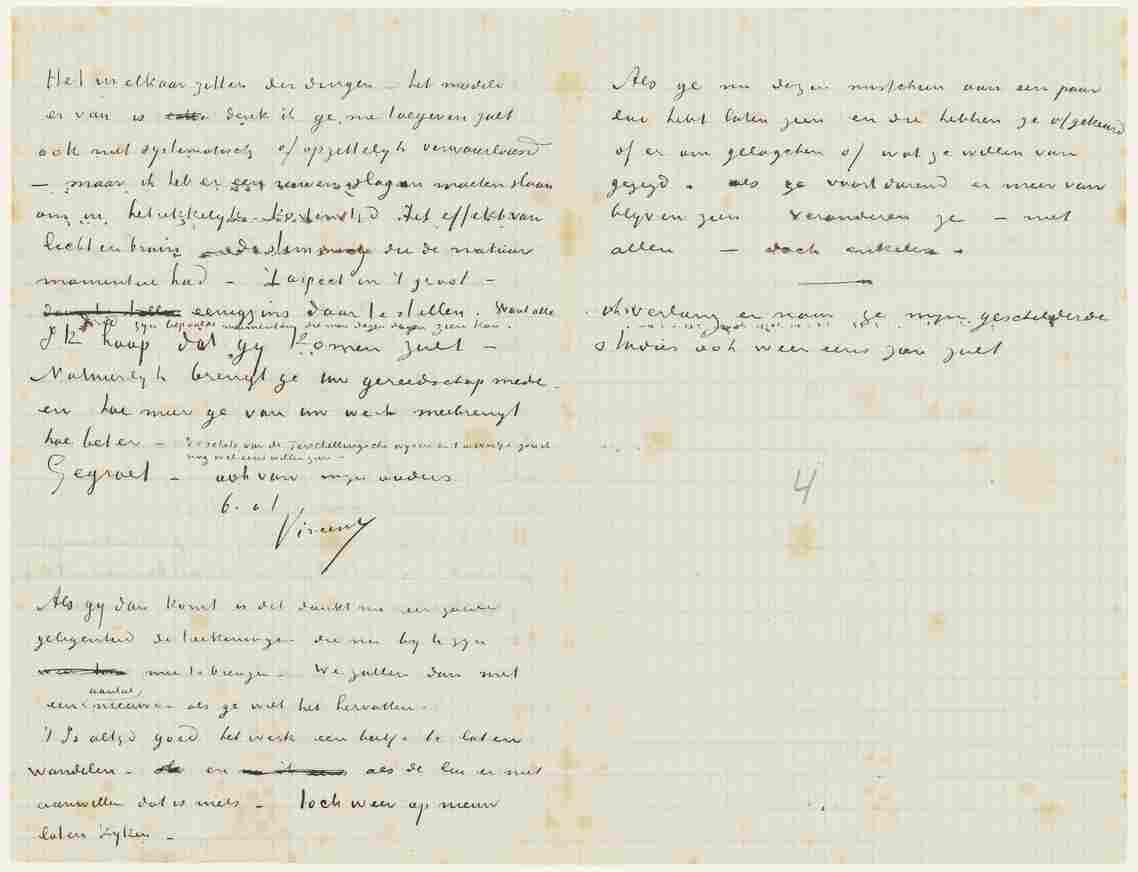 Het in elkaar zitten der dingen – het modelé
er van is denk ik ge me toegeven zult
ook niet systematisch of opzettelijk verwaarloosd
– maar ik heb er een ruwen slag in moeten slaan
om in betrekkelijk Het effekt van
licht en bruin – de stemming die de natuur
momenteel had – 't aspect in 't groot –
eenigzins daar te stellen. Want alle
drie zyn bepaalde momenten die men dezer dagen zien kan.
Ik hoop dat gy komen zult –
Natuurlyk brengt ge uw gereedschap mede
en hoe meer ge van uw werk meebrengt
hoe beter – De schets van de Terschellingsche
nog wel eens willen zien –
Gegroet – ook van mijn ouders
t. à t.
Vincent
Als gy dan komt is dit dunkt me een goede
gelegenheid de teekeningen die nu by U zyn
mee te brengen – We zullen dan met
aantal
een nieuwe als ge wilt het hervatten –
't Is altyd goed het werk een beetje te laten
wandelen – en als de lui er niet
aanwillen dat is niets – toch weer op nieuw
laten kyken –
Als ge nu dezen misschien aan een paar
lui hebt laten zien en die hebben ze afgekeurd
of er om gelagchen of wat ze willen van
gezegd. als ze voortdurend er meer van
blyven zien veranderen ze – niet
allen – doch enkelen.
ik verlang er naar ge mijn geschilderde
studies ook weer eens zien zult
4